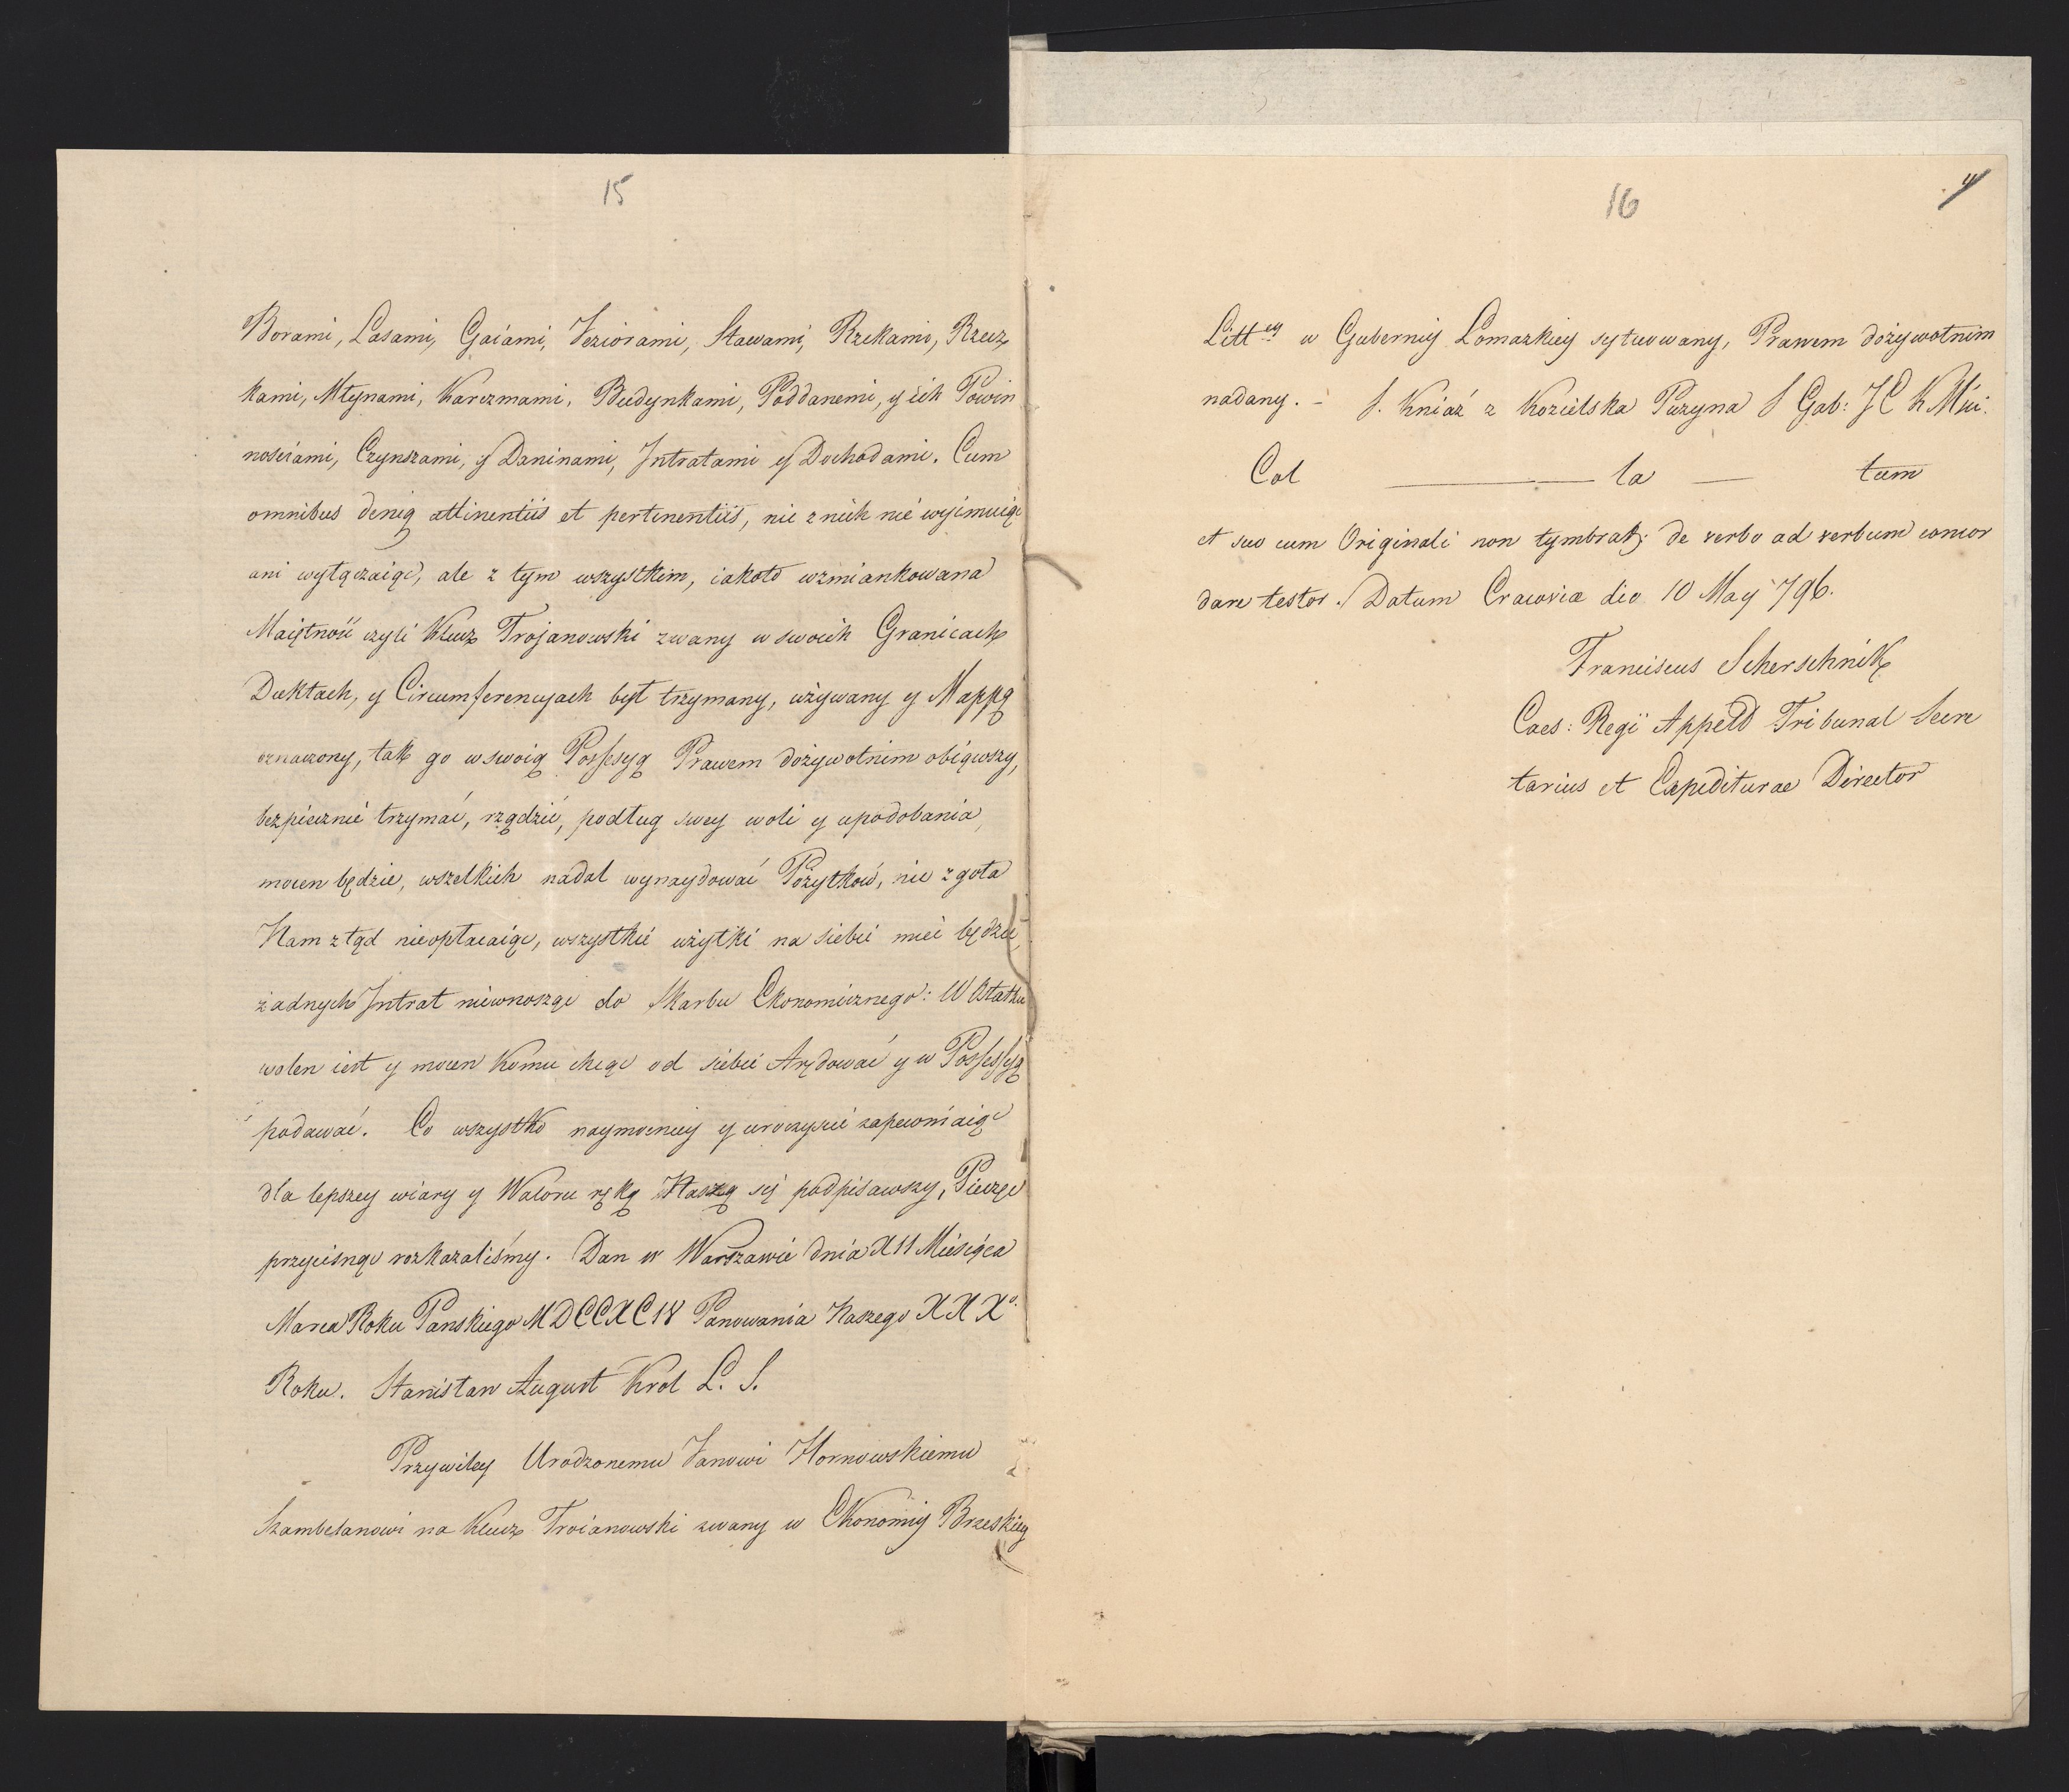 15
Borami, Lasami, Gaiámi, Jeziorami, Stawami, Rzekami, Rzecz
kami, Młynami, Karczmami, Budynkami, Poddanemi, y ich Powin
nościámi, Czynszami, y Daninami, Jntratami y Dochodami. Cum
omnibus deniq attinentiis et pertinentiis, nic z nich nie wyimuiąc
ani wyłączaiąc, ale z tym wszystkim, iakoto wzmiankowana
Maiętność czyli Klucz Trojanowski zwany w swoich Granicach
Duktach, y Circumferencyach był trzymany, używany y Mappą
oznaczony, tak go w swoią Possesyą Prawem dożywotnim obiąwszy,
bezpiecznie trzymać, rządzić, podług swey woli y upodobania,
mocen będzie, wszelkich nadal wynaydować Pożytków, nic zgoła
Nam ztąd nieopłacaiąc, wszystkie użytki na siebie mieć będzie,
żadnych Jntrat niewnosząc do Skarbu Ekonomicznego: W Ostatku
wolen iest y mocen komu chcąc od siebie Arędować y w Possessyą
podawać. Co wszystko naymocniey y uroczyscie zapewniaiąc
dla lepszey wiary y Waloru ręką Naszą się podpisawszy, Pieczęć
przycisnąc rozkazaliśmy. Dan w Warszawie dnia XII Miesiąca
Marca Roku Panskiego MDCCXCIV Panowania Naszego XXXo.
Roku. Stanisław August Krol L. S.
Przywiley Urodzonemu Janowi Hornowskiemu
Szambelanowi na Klucz Troianowski zwany w Ekonomij Brzeskiey
16
4
Littey w Gubernij Lomazkiey sytuowany, Prawem dożywotnim
nadany. – J. Kniaź z Kozielska Puzyna S Gab: J C K Mci:
Col — la — tum
et suo cum Originali non tymbrat: de verbo ad verbum concor
dare testor. Datum Cracoviæ die 10 May 796.
Franciscus Scherschnik
Caes: Regii Appell Tribunal Secre
tarius et Expediturae Director